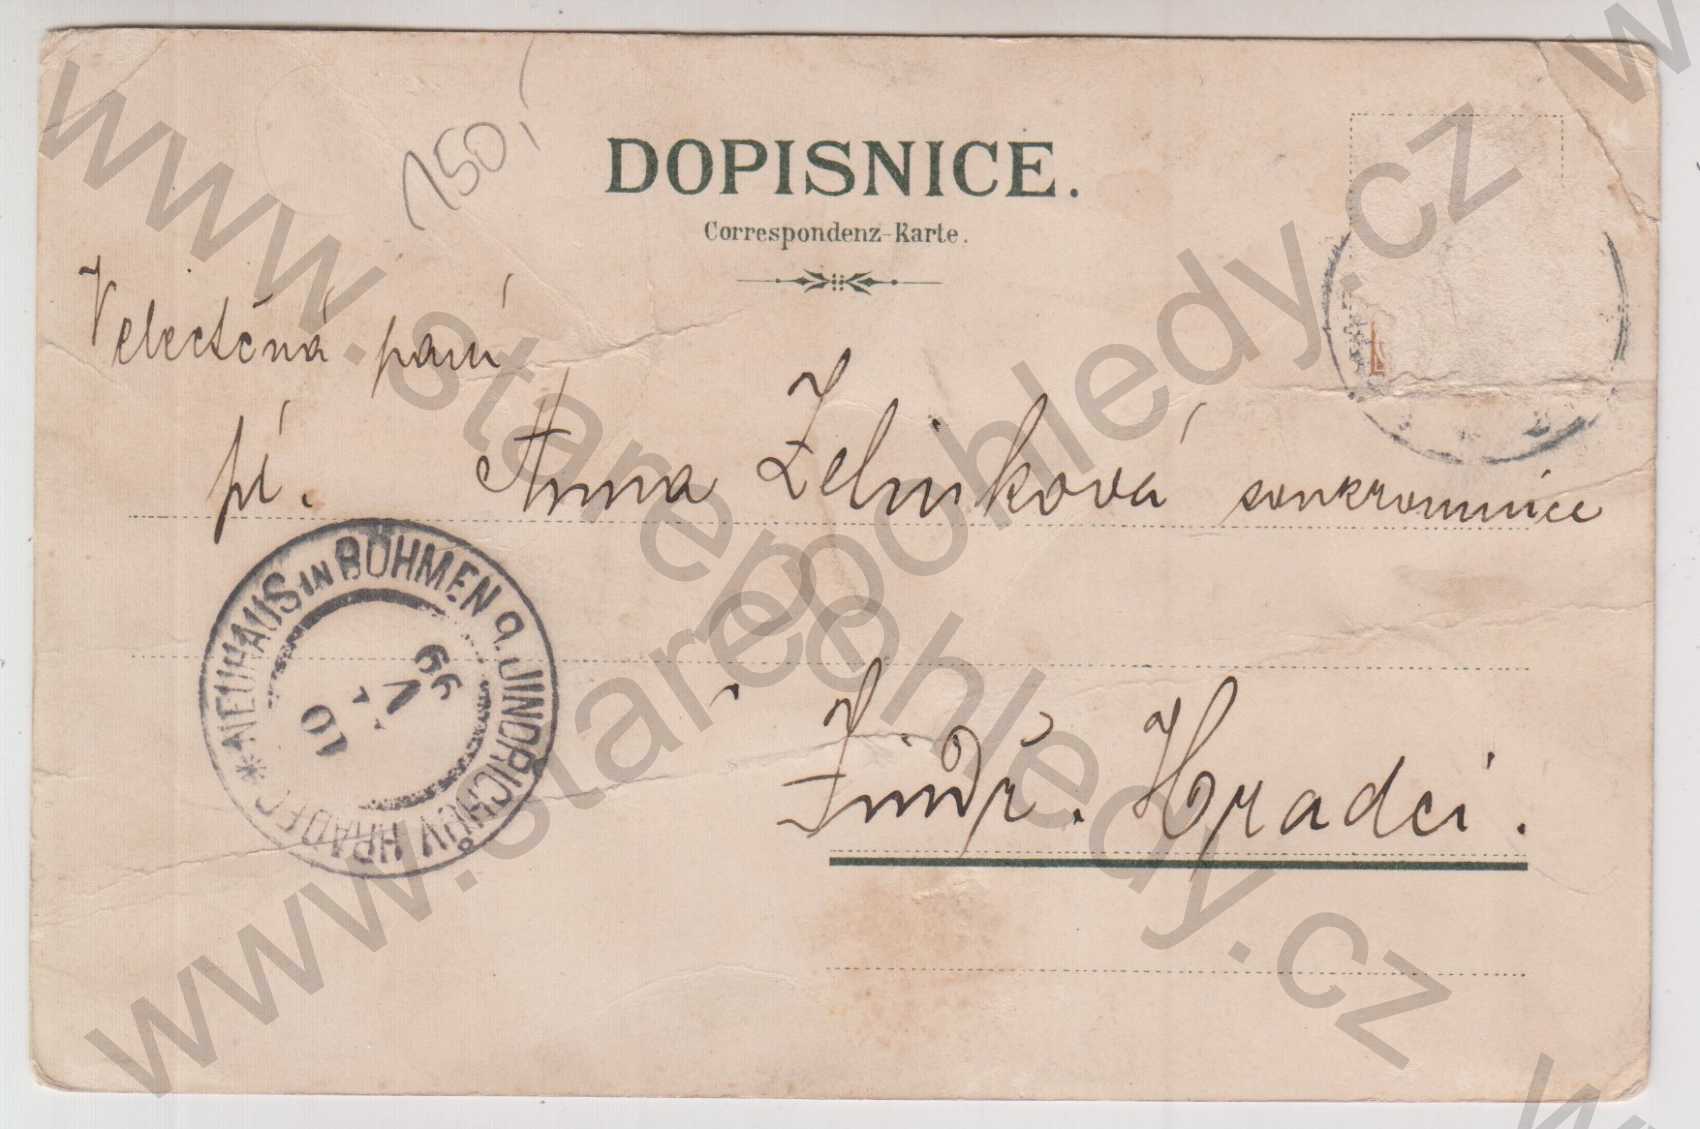 150,-
DOPISNICE.
Correspondenz-Karte.
Velectěná paní
pí. Anna Zelniková soukromnice
NEUHAUS IN BÖHMEN 9. JINDŘICHŮV HRADEC
10
V
99
v Jindř. Hradci.
www.starepohledy.cz
www.starepohledy.cz